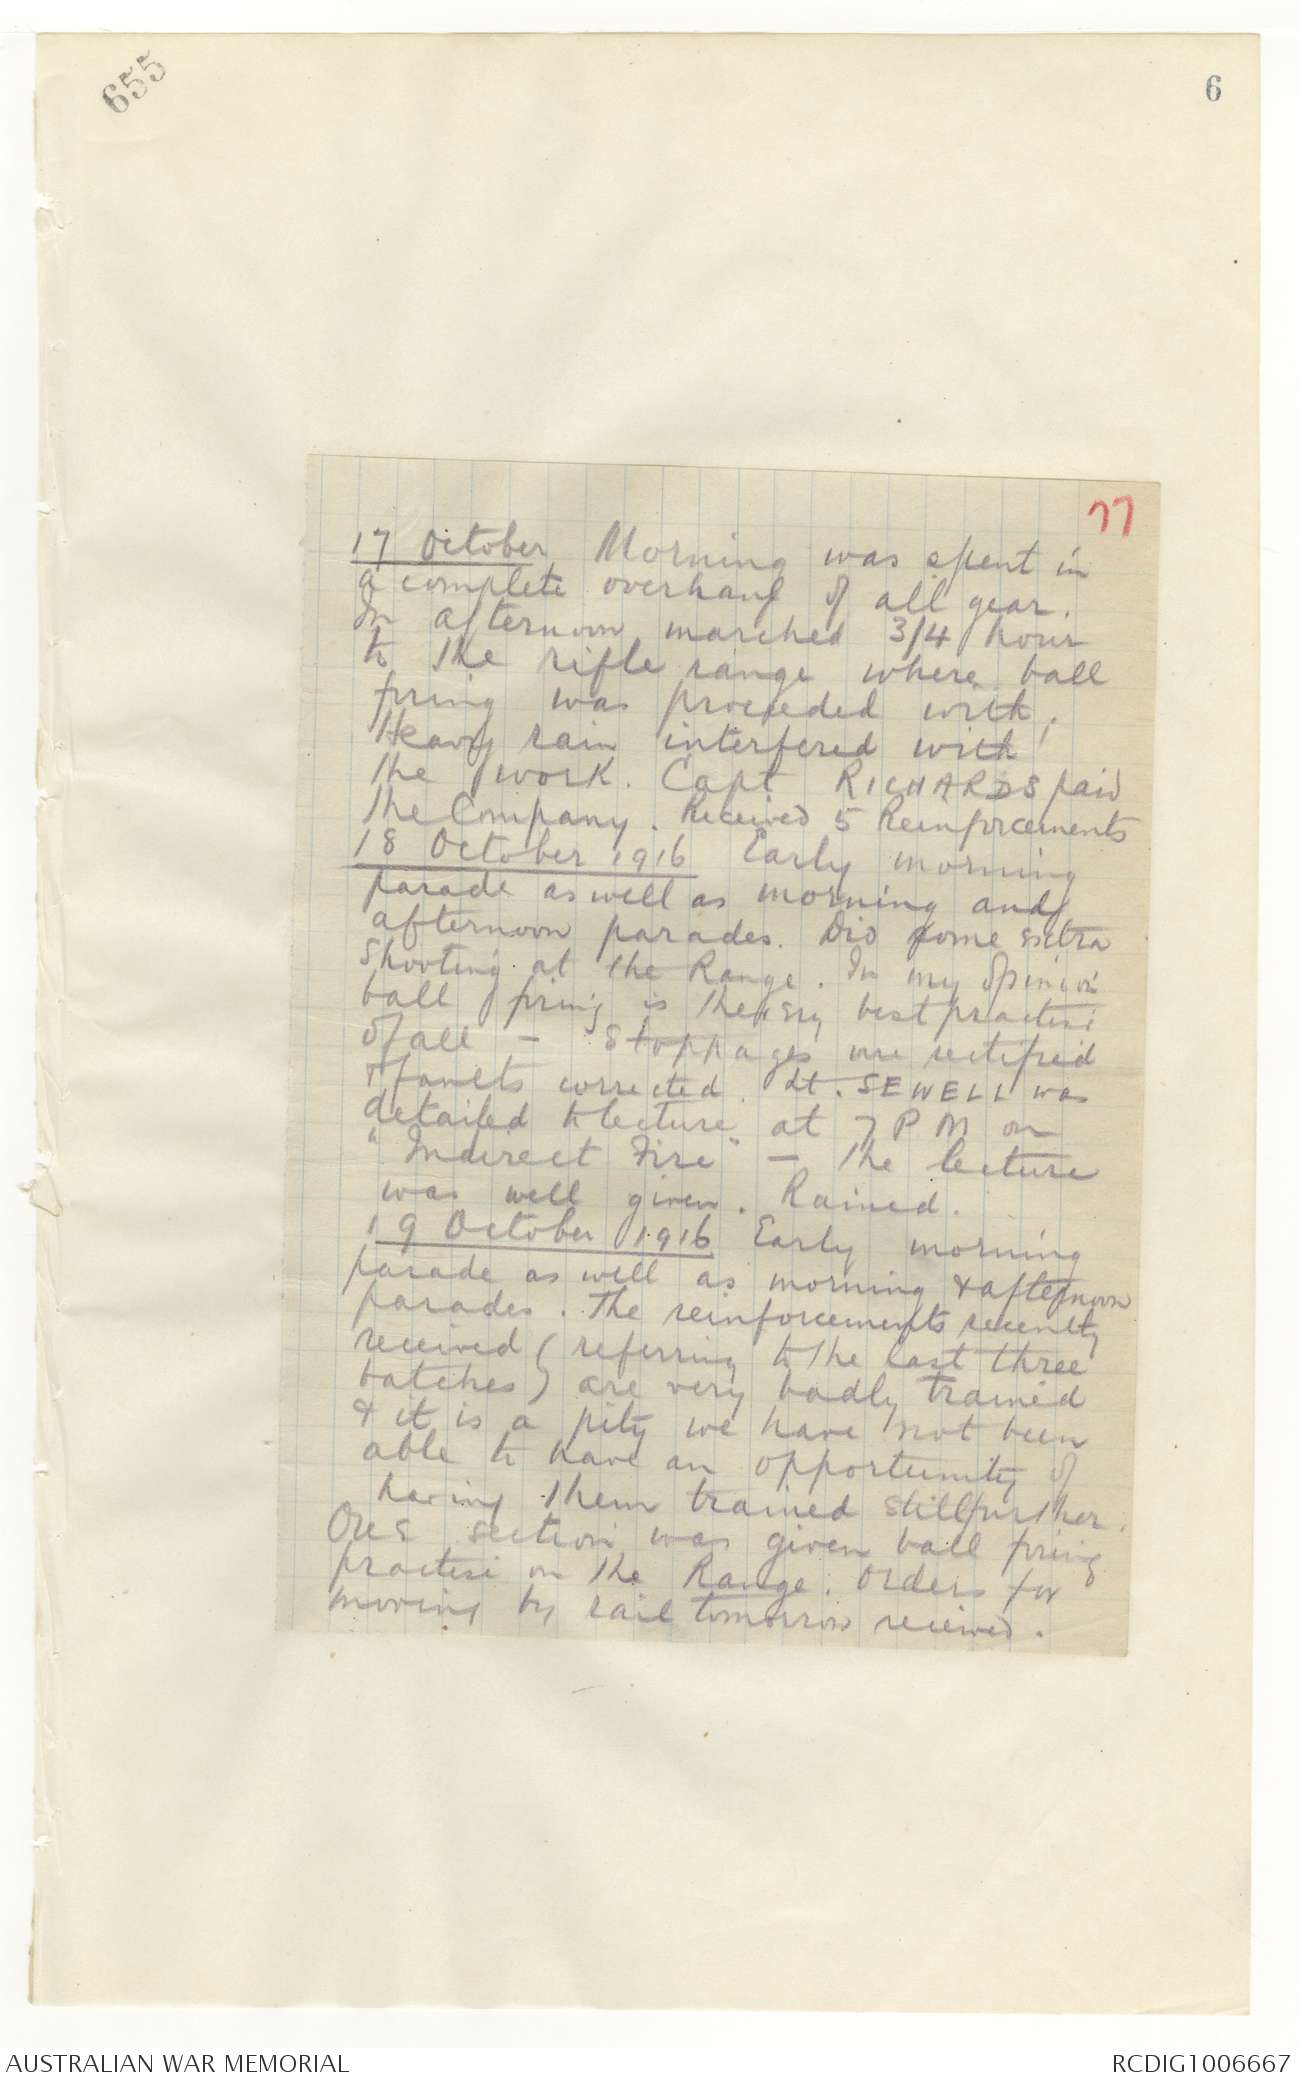 655
6
77
17 October Morning was spent in
a complete overhaul of all gear.
In afternoon marched 3/4 hour
to the rifle range where ball
firing was proceeded with,
Heavy rain interfered with
the work. Capt RICHARDS paid
the Company. Received 5 Reinforcements
18 October 1916 Early morning
parade as well as morning and
afternoon parades. Did some extra
Shooting at the Range. In my opinion
ball firing is the very best practise
of all - Stoppages are rectified
& faults corrected. Lt. SEWELL was
detailed to lecture at 7 PM on
"Indirect Fire" - the lecture
was well given. Rained.
19 October 1916 Early morning
parade as well as morning & afternoon
parades. The reinforcements recently
received (referring to the last three
batches) are very badly trained
& it is a pity we have not been
able to have an opportunity of
having them trained still further.
One section was given ball firing
practise on the Range. Orders for
moving by rail tomorrow received.
AUSTRALIAN WAR MEMORIAL
RCDIG1006667